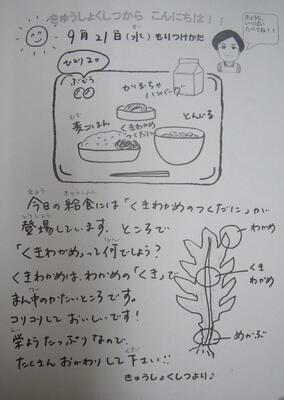 きゅうしょくしつから こんにちは！！
9月21日(水) もりつけかた
すい
きょうも、
いっぱい
たべてね！！
ひとり2コ
ぶどう
かぼちゃ
ハンバーグ
くきわかめ
つくだに
むぎ
麦ごはん
とんじる
きょう きゅうしょく
今日の給食には「くきわかめのつくだに」が
とうじょう
登場しています。ところで
「くきわかめ」って何でしょう？
なん
くきわかめは、わかめの「くき」で
まん中のかたいところです。
コリコリして おいしいです！
栄ようたっぷりなので、
たくさん おかわりして下さい!!
きゅうしょくしつより♪
わかめ
くき
わかめ
めかぶ